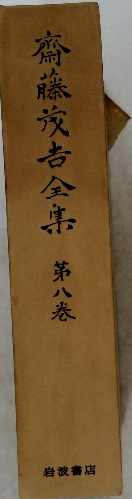 齋藤茂吉全集
第八巻
岩波書店